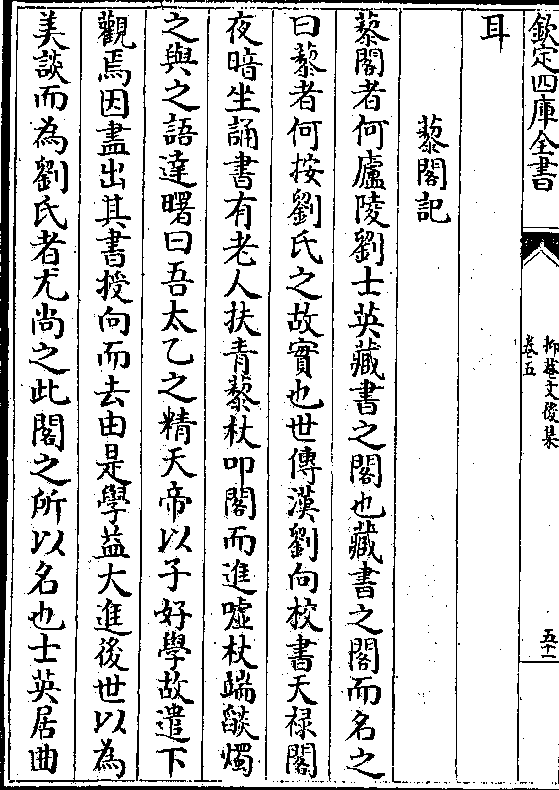 欽定四庫全書
抑菴文後集
卷五
五十一
耳
藜閣記
藜閣者何廬陵劉士英藏書之閣也藏書之閣而名之
曰藜者何按劉氏之故實也世傳漢劉向校書天禄閣
夜暗坐誦書有老人扶青藜杖叩閣而進噓杖端燄燭
之與之語達曙曰吾太乙之精天帝以子好學故遣下
觀焉因盡出其書授向而去由是學益大進後世以為
美談而為劉氏者尤尚之此閣之所以名也士英居曲